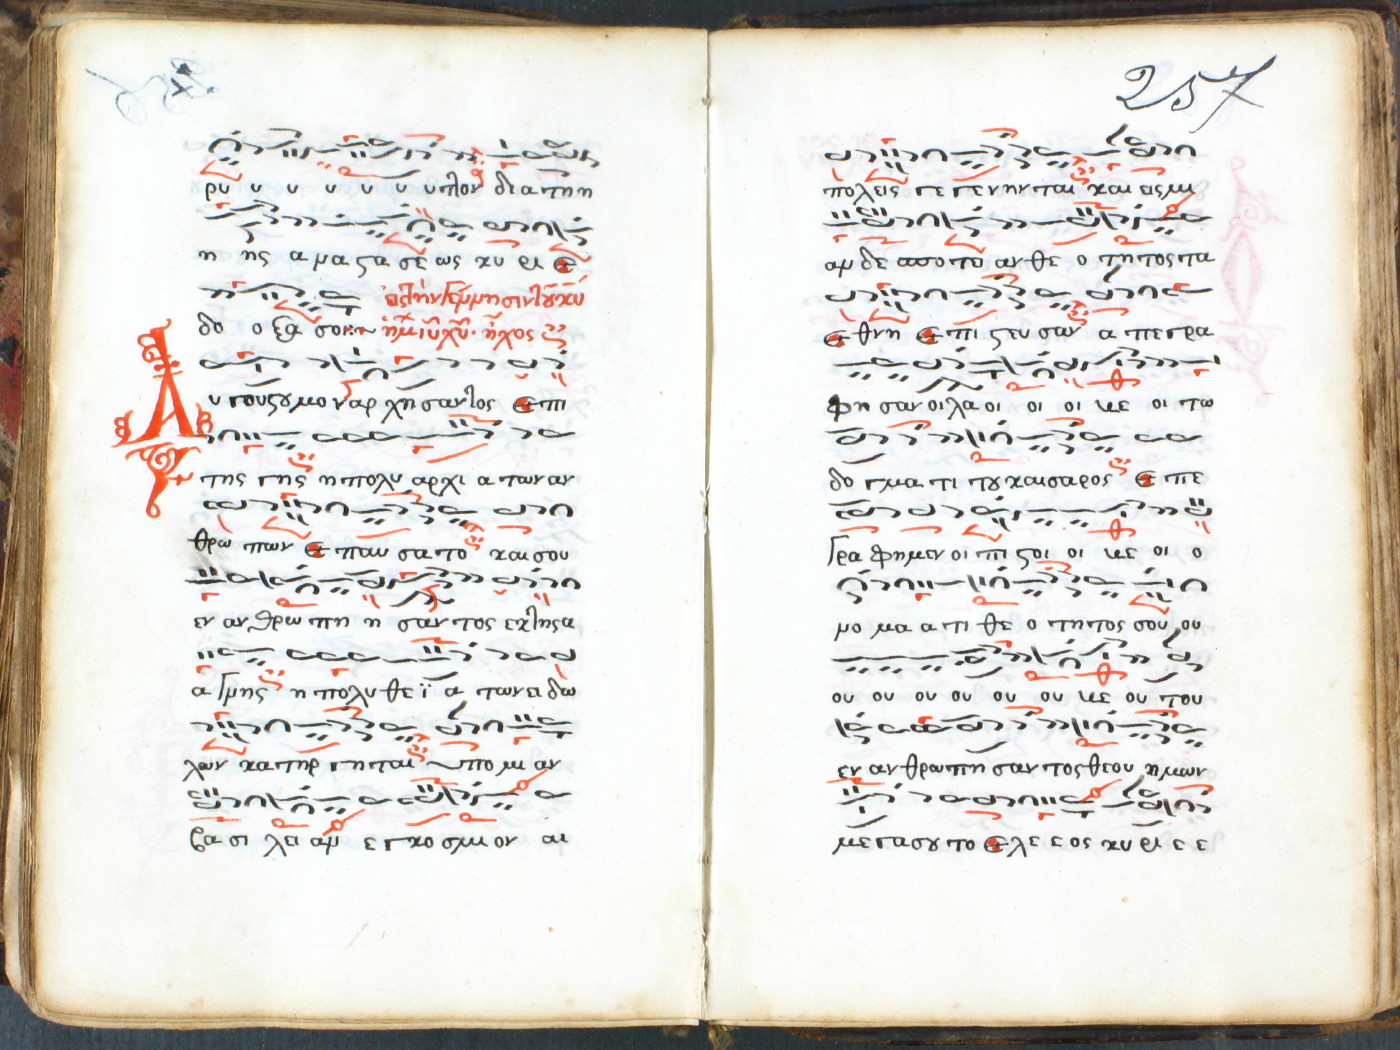 ρυ υ υ υ υ υ υ υπλον δια τη η
η ης α μα ζα σε ως κυ ρι ε
εις την Γέννησιν του κυ
δο ο ξα σοι ημ ιυ χυ ηχος
Αυγουστου μο ναρ χη σαντος ε πι
της γης η πολυ αρχι α των αν
θρω πων ε παυ σα το και σου
εν αν θρω πη η σαν τος εκ της α
α γνης η πολυ θε ϊ α των ει δω
λων κα τηρ γη ται υπο μι αν
βα σι λει αν ε γκο σμι ον αι
257
πολεις γε γε νην ται και εις μι
αν δε σπο τει αν θε ο τη τος τα
ε θνη ε πι ςευ σαν α πε γρα
φη σαν οι λα οι οι οι με οι τω
δο γμα τι του καισαρος ε πε
γρα φημεν οι πι ςοι οι με οι ο
νο μα α τι θε ο τη τος σου ου
ου ου ου ου ου ου με ου του
εν αν θρωπη σαν τος θεου ημων
με γα σου το ε λε ε ος κυ ρι ε ε